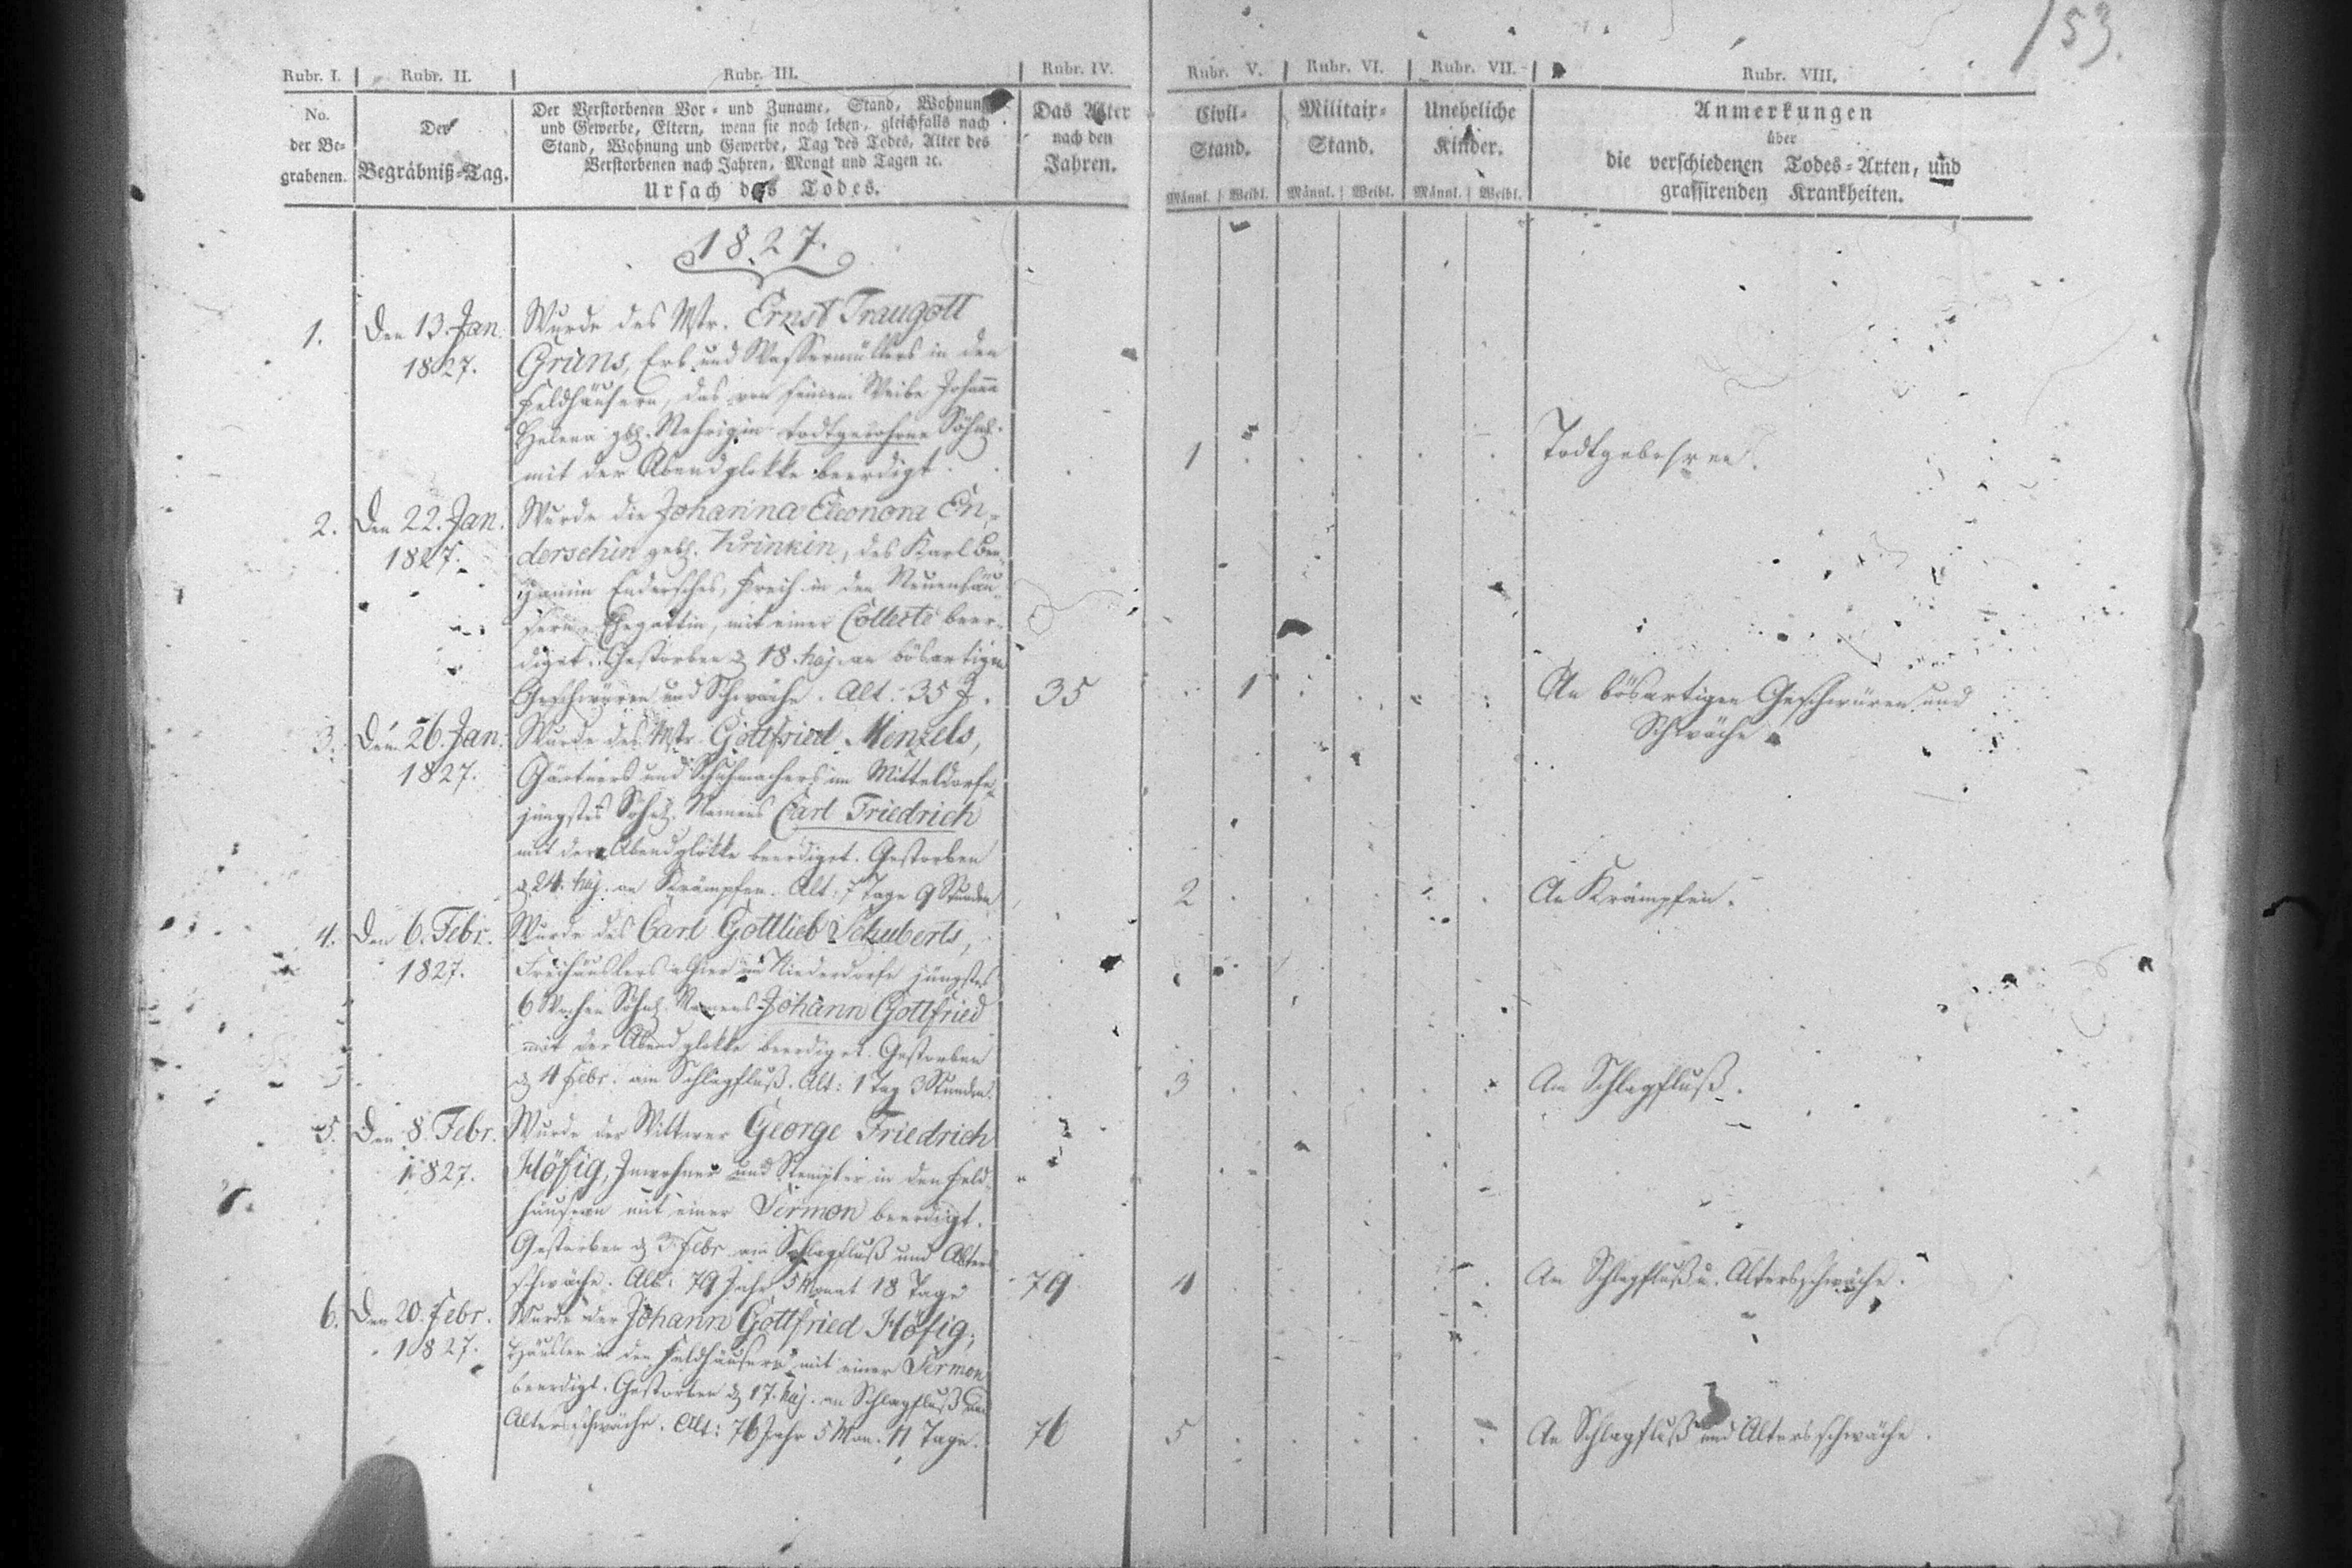 153.
Rubr. I. Rubr. II. Rubr. III. Rubr. IV. Rubr. V. Rubr. VI. Rubr. VII. Rubr. VIII.
No. der Be-grabenen.
Der Begräbniß-Tag.
Der Verstorbenen Vor- und Zuname, Stand, Wohnung
und Gewerbe, Eltern, wenn sie noch leben, gleichfalls nach
Stand, Wohnung und Gewerbe, Tag des Todes, Alter des
Verstorbenen nach Jahren, Monat und Tagen ꝛc.
Ursach des Todes.
Das Alter
nach den
Jahren.
Civil-
Stand.
Männl. Weibl.
Militair-
Stand.
Männl. Weibl.
Uneheliche
Kinder.
Männl. Weibl.
Anmerkungen
über
die verschiedenen Todes-Arten, und
grassirenden Krankheiten.
1827.
1. Den 13. Jan. Wurde des Mstr. Ernst Traugott
1827. Gruns, Erb und Wassermüllers in den
Feldhäusern, das von seinem Weibe Johana
Helena geb. todtgebohrne Söhnl.
mit der Abendglokke beerdigt. 1 Todtgebohren.
2. Den 22. Jan. Wurde die Johanna Eleonora En-
1827. derschin geb. Krinkin, des Karl Ben-
jamin Endersches, in den Neuenhäu-
sern Ehegattin, mit einer Collecte beer-
diget. Gestorben d 18. huj. an bösartigen
Geschwüren und Schwäche. Alt: 35 J. 35 1 An bösartigen Geschwüren und
Schwäche.
3. Den 26. Jan. Wurde des Mstr. Gottfried Menzels,
1827. Gärtners und Schuhmachers im Mitteldorfe
jüngstes Söhnl. Namens Carl Friedrich
mit der Abendglokke beerdiget. Gestorben
d 24. huj. an Krämpfen. Alt: 7 Tage 9 Stunden 2 An Krämpfen.
4. Den 6. Febr. Wurde des Carl Gottlieb Schuberts,
1827. Freihäuslers alhier im Niederdorfe jüngstes
6 Wochen Söhnl. Namens Johann Gottfried
mit der Abendglokke beerdiget. Gestorben
d 4 Febr. am Schlagfluß. Alt: 1 Tag 3 Stunden. 3 Am Schlagfluß.
5. Den 8. Febr. Wurde der Wittwer George Friedrich
1827. Höfig, Inwohner und in den Feld-
häusern mit einer Sermon beerdigt.
Gestorben d 3 Febr. am Schlagfluß und Alters
schwäche. Alt: 79 Jahr 5 Monat 18 Tage 79 4 An Schlagfluß u. Altersschwäche.
6. Den 20. Febr. Wurde der Johann Gottfried Höfig,
1827. Häusler in den Feldhäusern mit einer Sermon
beerdigt. Gestorben d 17. huj. an Schlagfluß und
Altersschwäche. Alt: 76 Jahr 5 Mon. 11 Tage. 76 5 An Schlagfluß und Altersschwäche.